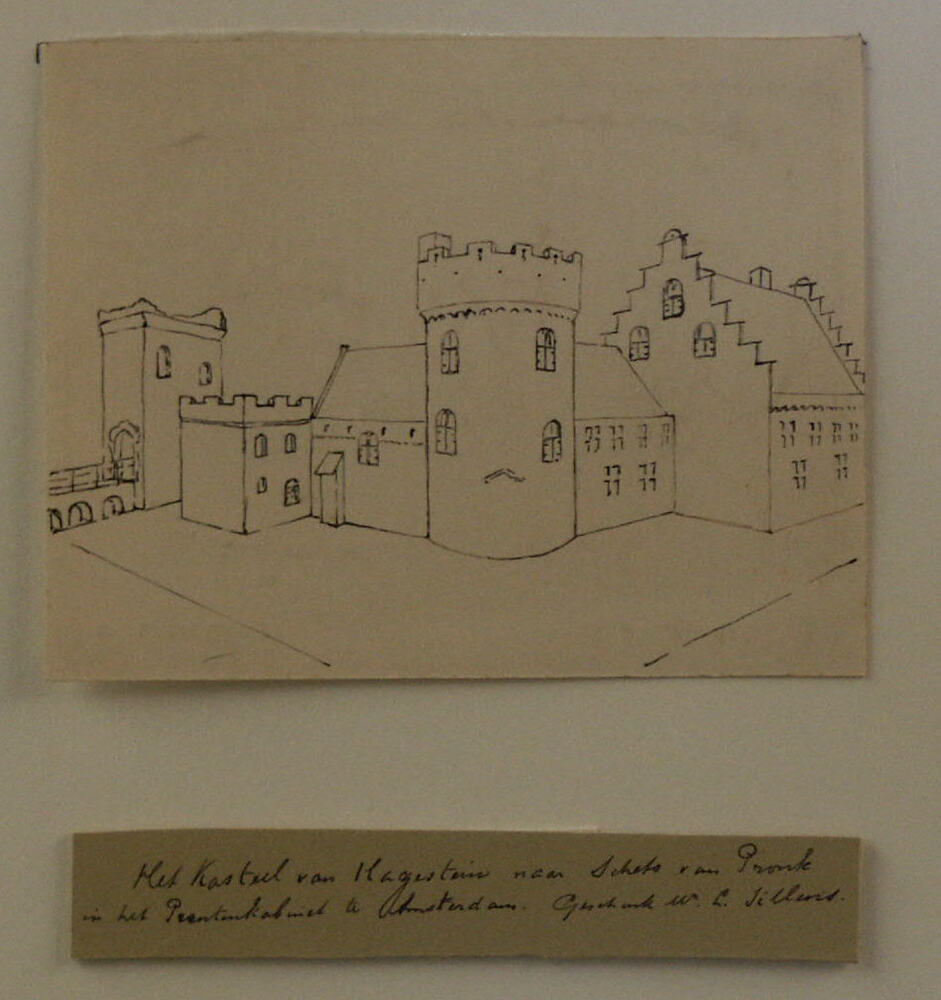 Het Kasteel van Hagestein naar Schets van Pronk
in het Prentenkabinet te Amsterdam. Geschenk W. L.